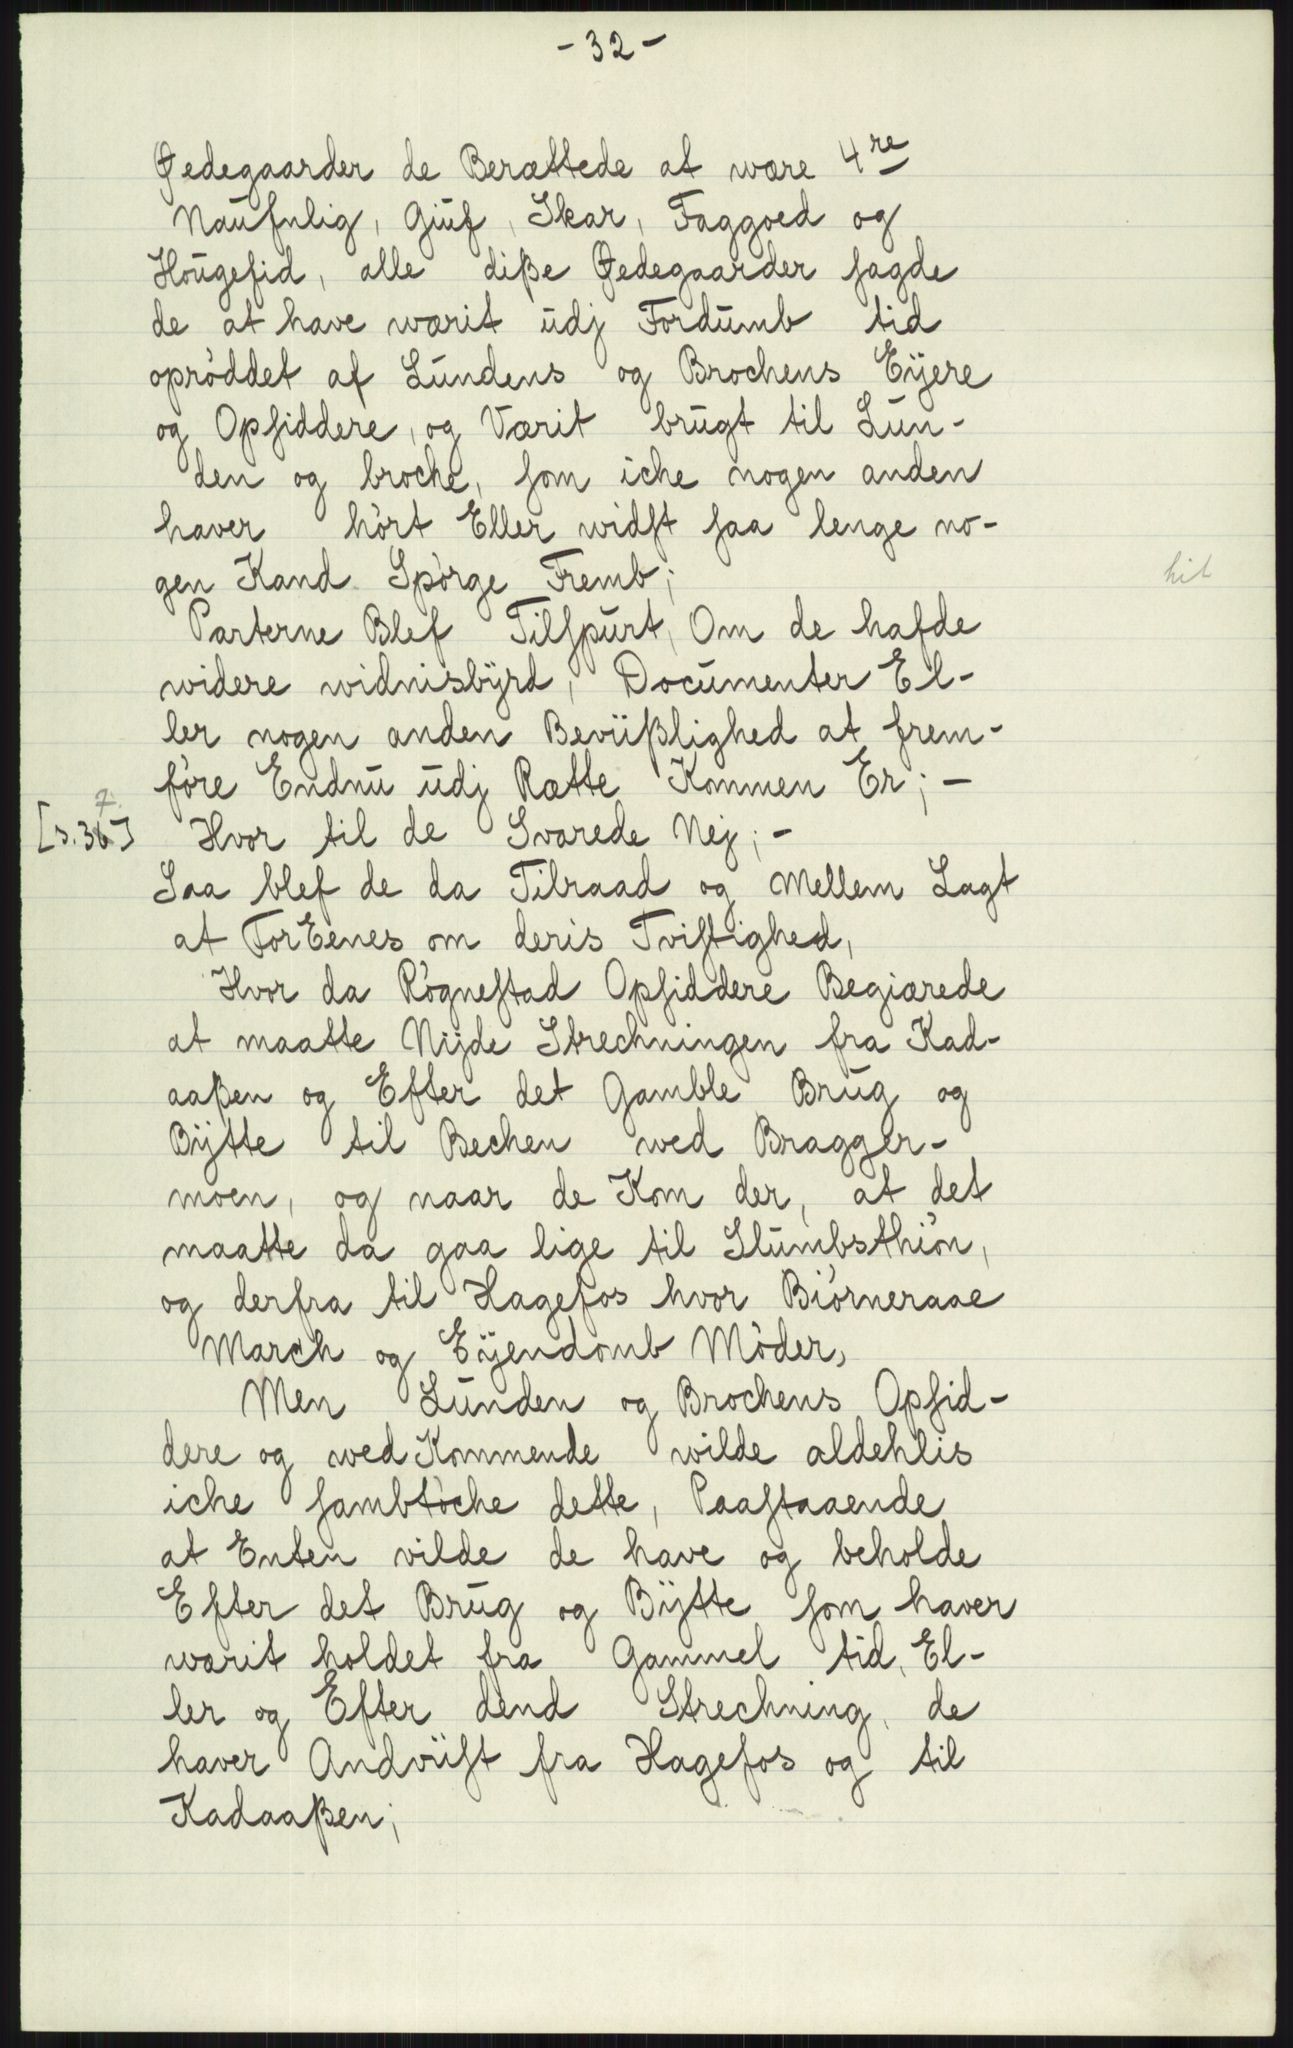 - 32 -
Ødegaarder de Berættede at wære 4re
Naufnlig, Giuf, Skar, Faggoed og
Hougeſid, alle diße Ødegaarder ſagde
de at have wærit udj Fordumb tid
oprøddet af Lundens og Brochens Eÿere
og Opſiddere, og Værit brugt til Lun-
den og broche, ſom iche nogen anden
haver hørt Eller widſt ſaa lenge no-
gen Kand Spørge Fremb;
hit
Parterne Blef Tilſpurt, Om de hafde
widere widnisbÿrd, Documenter El-
ler nogen anden Beviißlighed at frem-
føre Endnu udj Rætte Kommen Er; -
[s. 367] Hvor til de Svarede Nej; -
Saa blef de da Tilraad og Mellem Lagt
at ForEenes om deris Tviſtighed,
Hvor da Røgneſtad Opſiddere Begiærede
at maatte Nÿde Strechningen fra Kad-
aaßen og Efter det Gamble Brug og
Bÿtte til Bechen wed Bragger-
moen, og naar de Kom der, at det
maatte da gaa lige til Slumbsthiøn,
og derfra til Hagefos hvor Biørneraae
March og Eÿendomb Møder,
Men Lunden og Brochens Opſid-
dere og wed Kommende wilde aldehlis
iche ſambtøche dette, Paaſtaaende
at Enten vilde de have og beholde
Efter det Brug og Bÿtte ſom haver
wærit holdet fra Gammel tid, El-
ler og Efter dend Strechning, de
haver Andviiſt fra Hagefos og til
Kadaaßen;